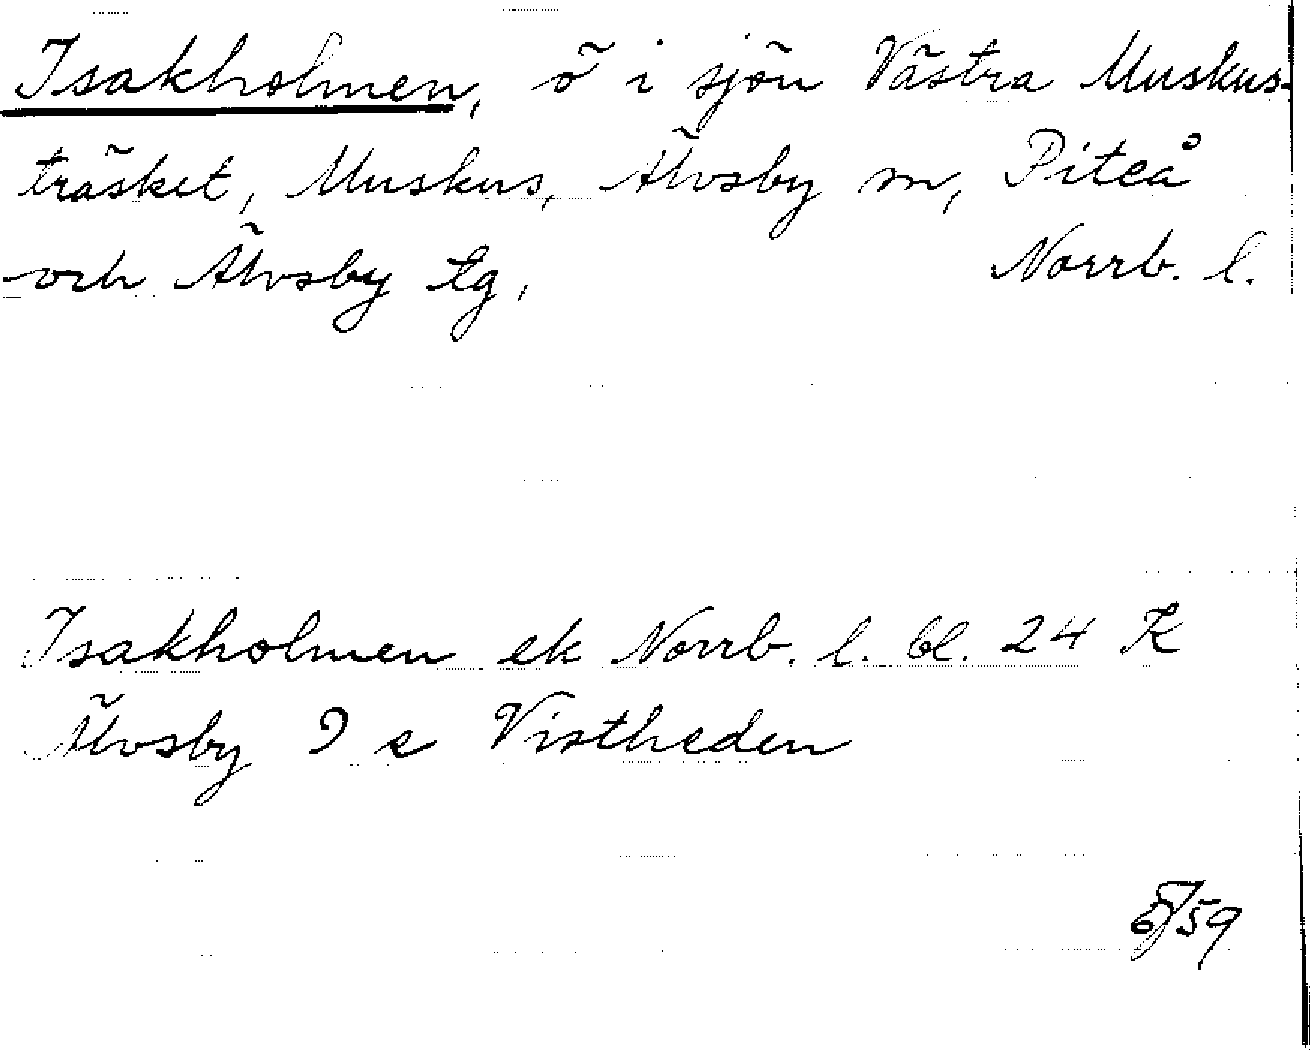 Isakholmen, ö i sjön Västra Muskus-
träsket, Muskus, Älvsby sn, Piteå
och Älvsby tg, Norrb. l.
Isakholmen ek Norrb. l. bl. 24 K
Älvsby 9 e Vistheden
/59